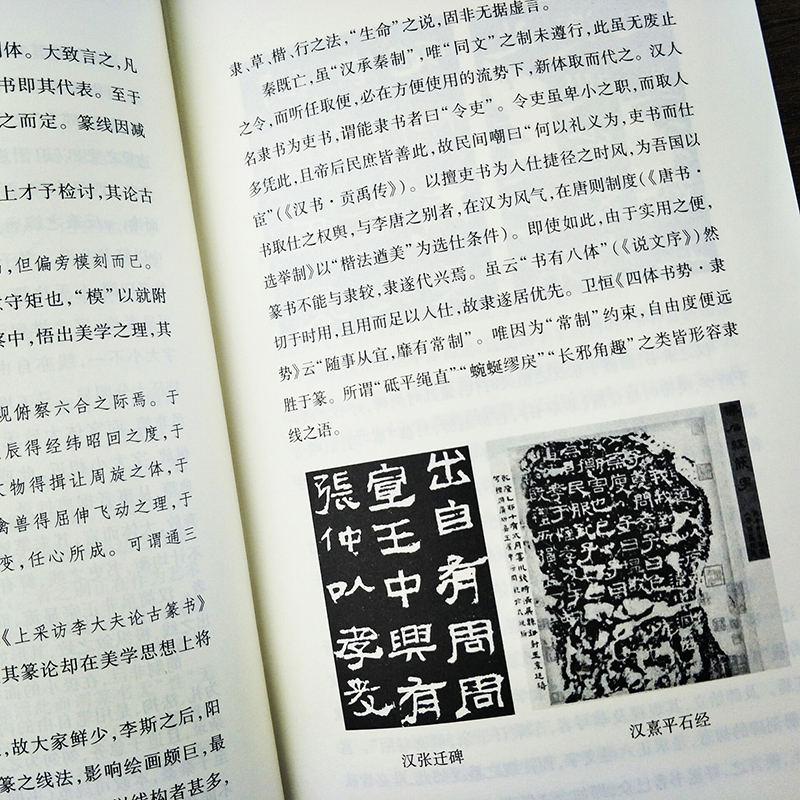 体。大致言之，凡
书即其代表。至于
之而定。篆线因减
上才予检讨，其论古
，但偏旁模刻而已。
守矩也，“模”以就附
察中，悟出美学之理，其
观俯察六合之际焉。于
辰得经纬昭回之度，于
文物得揖让周旋之体，于
禽兽得屈伸飞动之理，于
变，任心所成。可谓通三
《上采访李大夫论古篆书》
其篆论却在美学思想上将
，故大家鲜少，李斯之后，阳
篆之线法，影响绘画颇巨，最
线构者甚多，
隶、草、楷、行之法，“生命”之说，固非无据虚言。
秦既亡，虽“汉承秦制”，唯“同文”之制未遵行，此虽无废止
之令，而听任取便，必在方便使用的流势下，新体取而代之。汉人
名隶书为吏书，谓能隶书者曰“令吏”。令吏虽卑小之职，而取人
多凭此，且帝后民庶皆善此，故民间嘲曰“何以礼义为，吏书而仕
宦”（《汉书·贡禹传》）。以擅吏书为入仕捷径之时风，为吾国以
书取仕之权舆，与李唐之别者，在汉为风气，在唐则制度（《唐书·
选举制》以“楷法遒美”为选仕条件）。即使如此，由于实用之便，
篆书不能与隶较，隶遂代兴焉。虽云“书有八体”（《说文序》）然
切于时用，且用而足以入仕，故隶遂居优先。卫恒《四体书势·隶
势》云“随事从宜，靡有常制”。唯因为“常制”约束，自由度便远
胜于篆。所谓“砥平绳直”“蜿蜒缪戾”“长邪角趣”之类皆形容隶
线之语。
出自有周周
宣王中興有
張仲以孝友
汉张迁碑
汉熹平石经